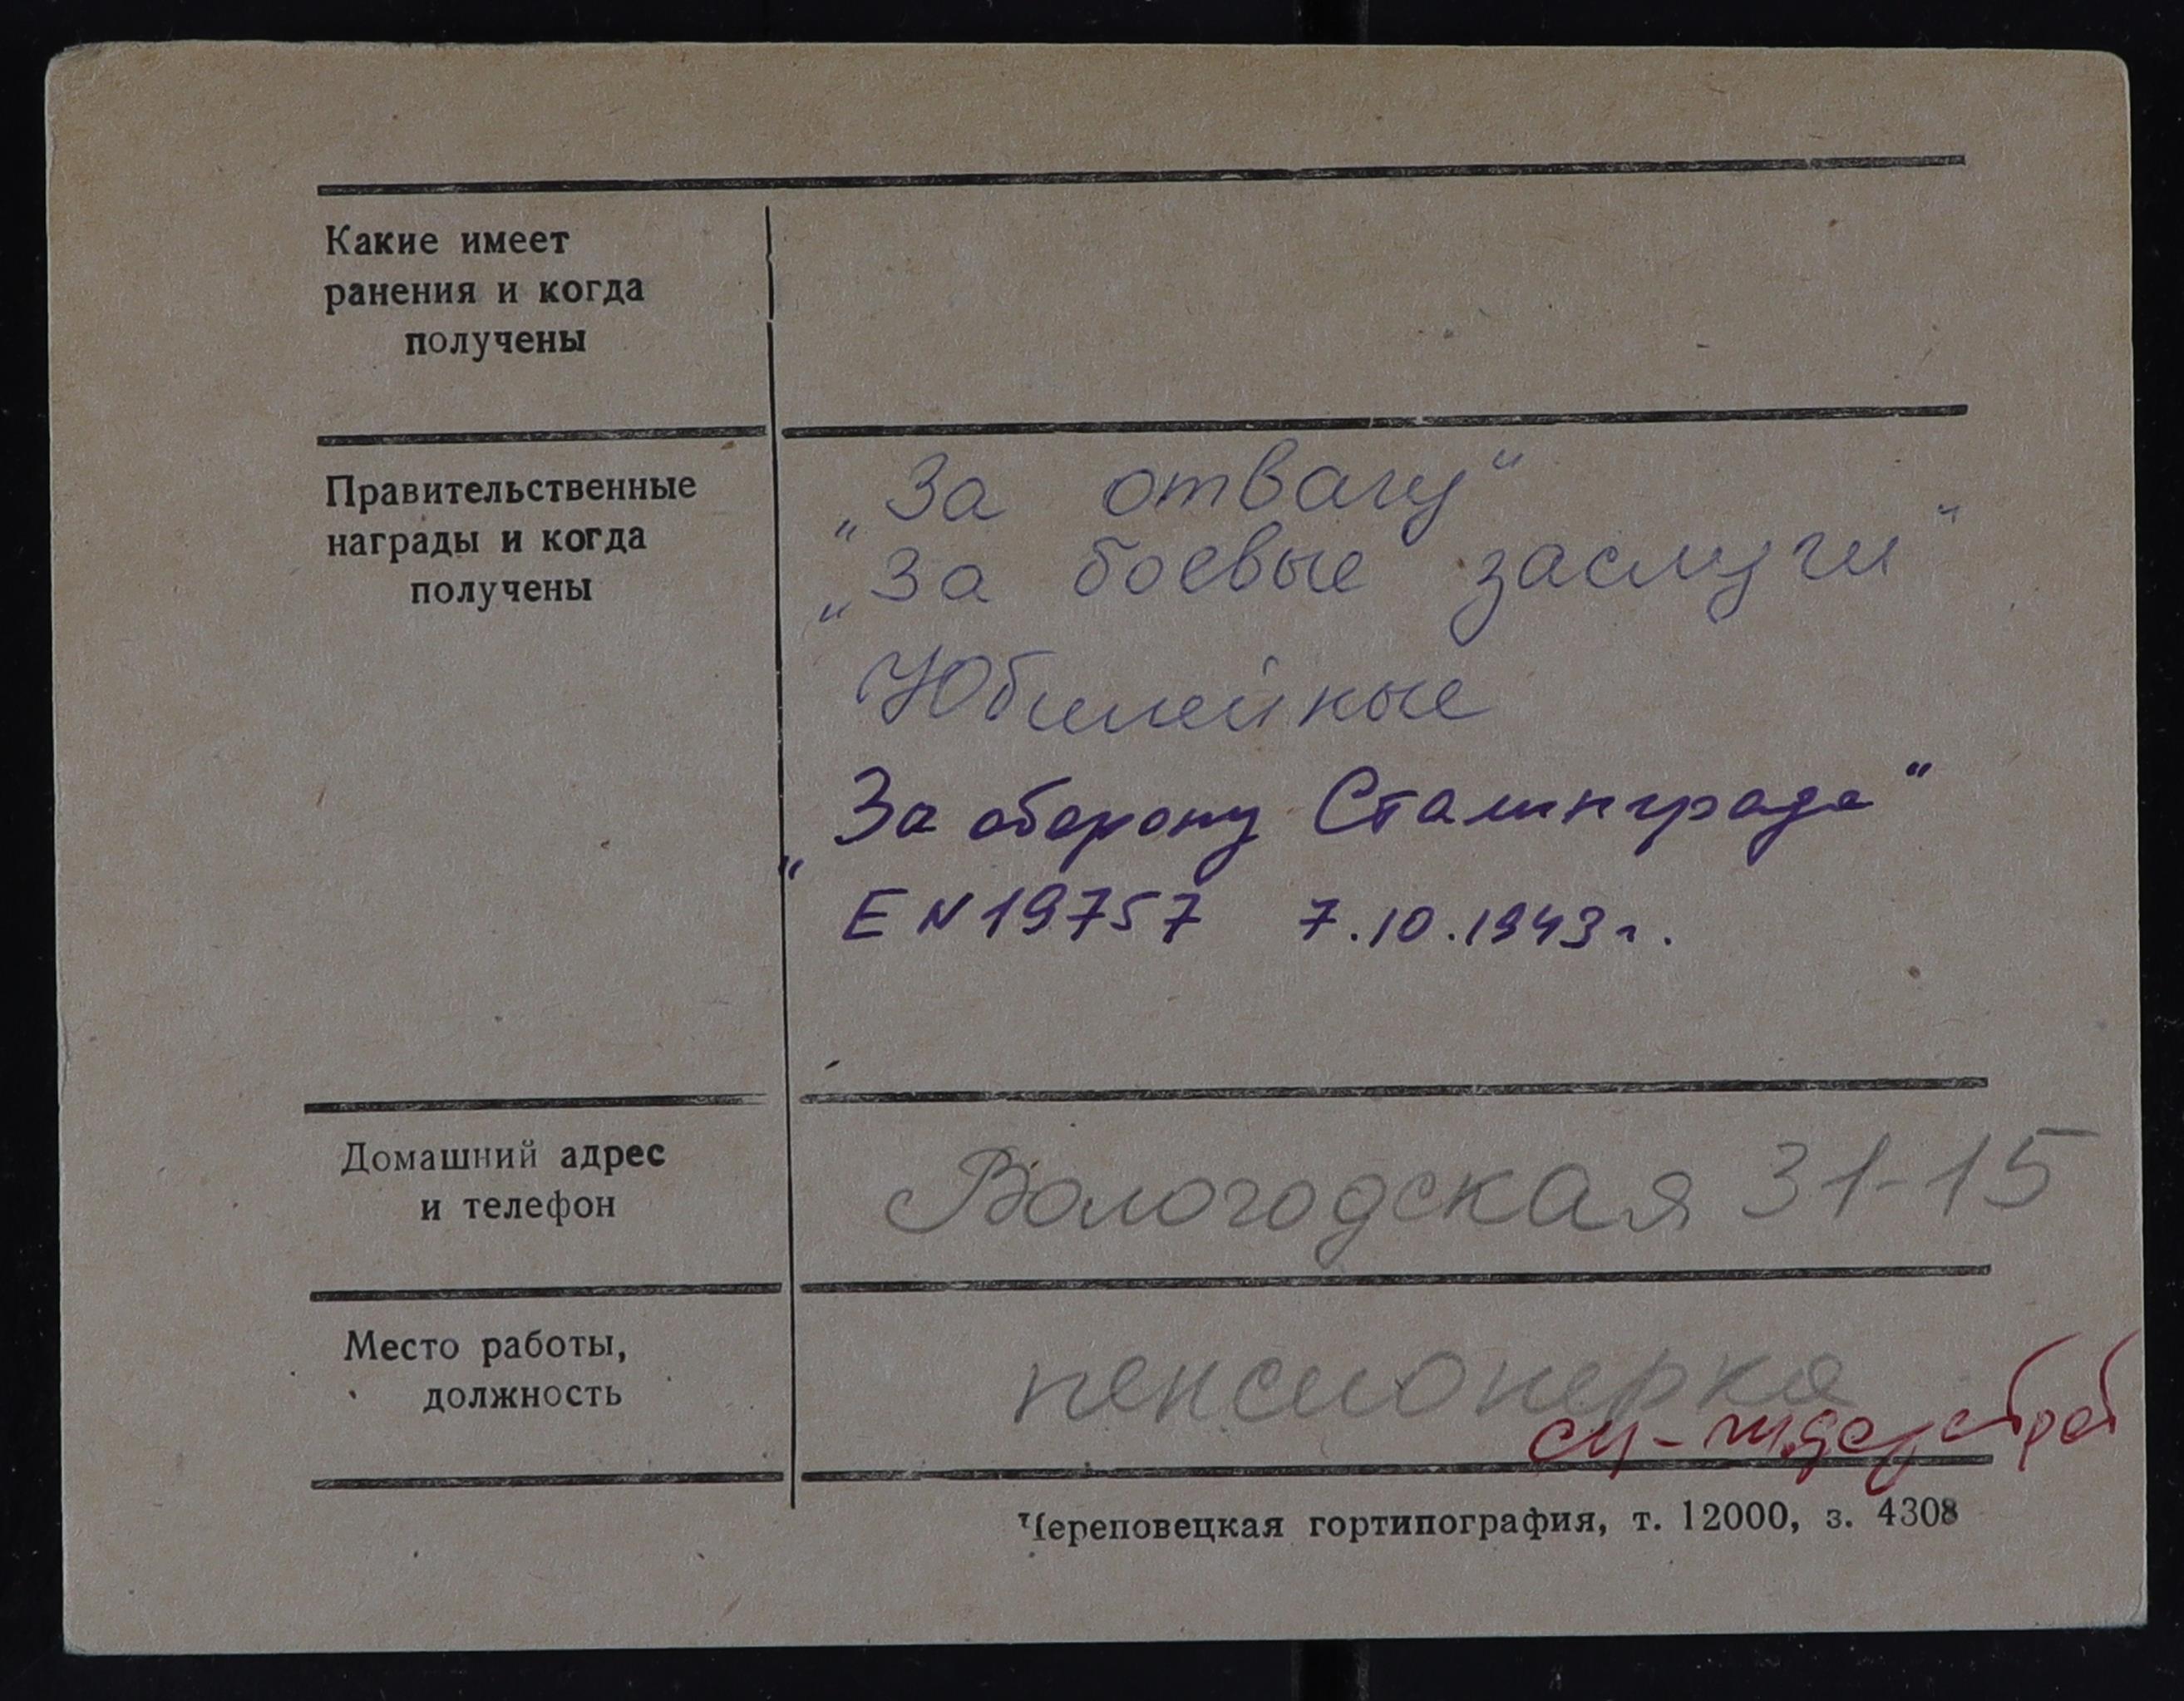 Какие имеет
ранения и когда
получены
Правительственные
награды и когда
получены
„За отвагу“
„За боевые заслуги“
Юбилейные
„За оборону Сталинграда“
Е N 19757 7.10.1943 г.
Домашний адрес
и телефон
Вологодская 31-15
Место работы,
должность
пенсионерка
Череповецкая гортипография, т. 12000, з. 4308